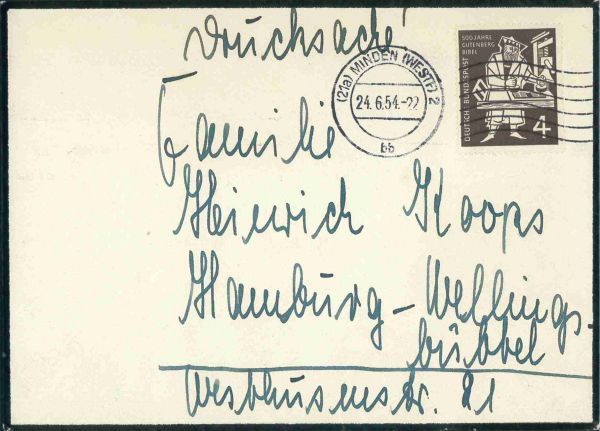 Drucksache
500 JAHRE
GUTENBERG
BIBEL
DEUTSCHE BUNDESPOST
4
(21a) MINDEN (WESTF) 2
24.6.54.-22
bb
Familie
Heinrich Koops
Hamburg-Wellings-
büttel